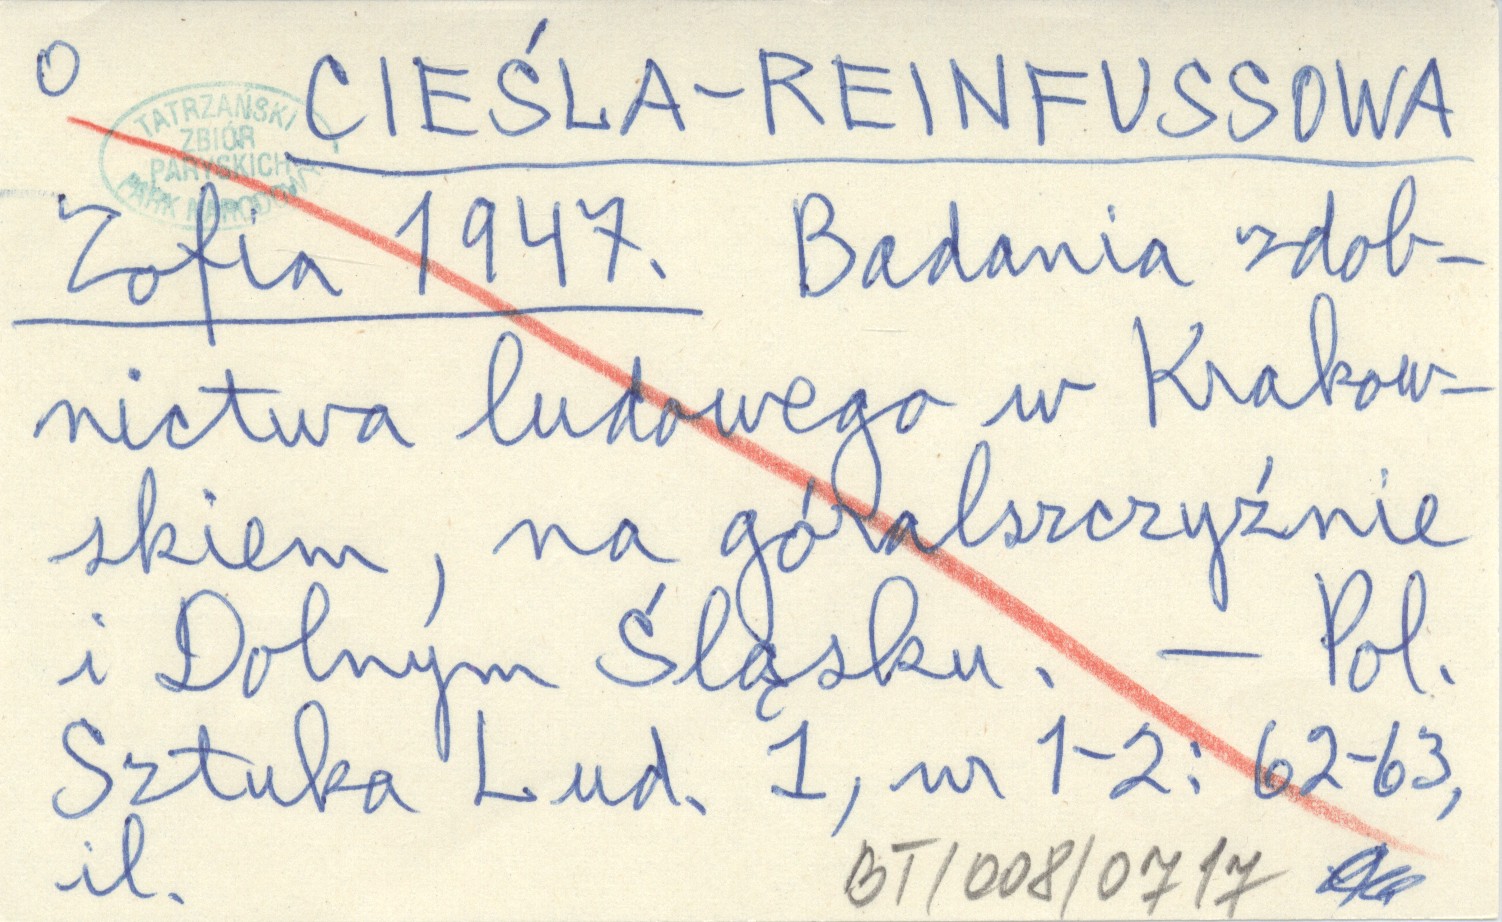 O
CIEŚLA-REINFUSSOWA
TATRZAŃSKI
ZBIÓR
PARYSKICH
PARK NARODOWY
Zofia 1947. Badania zdob-
nictwa ludowego w Krakow-
skiem, na góralszczyźnie
i Dolnym Śląsku. — Pol.
Sztuka Lud. 1, nr 1-2: 62-63,
il.
BT/008/0717